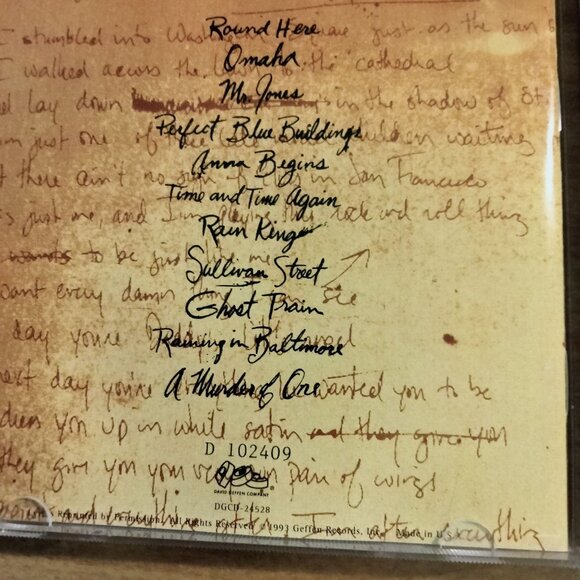 Round Here
I stumbled into Was square just as the sun
Omaha
I walked across the to the cathedral
Mr. Jones
lay down in the shadow of St.
Perfect Blue Buildings
just one of children waiting
Anna Begins
there ain't no in San Francisco
Time and Time Again
just me, and I'm playing this rock and roll thing
Rain King
wants to be just like me
Sullivan Street
want every damn thing see
Ghost Train
day you're
Raining in Baltimore
next day you're wanted you to be
A Murder of One
you up in white satin and they give you
D 102409
they give you your very own pair of wings
DAVID GEFFEN COMPANY
DGCD-24528
Reprinted by Permission. All Rights Reserved. ©1993 Geffen Records, Inc. Made in U.S.A.
I anything